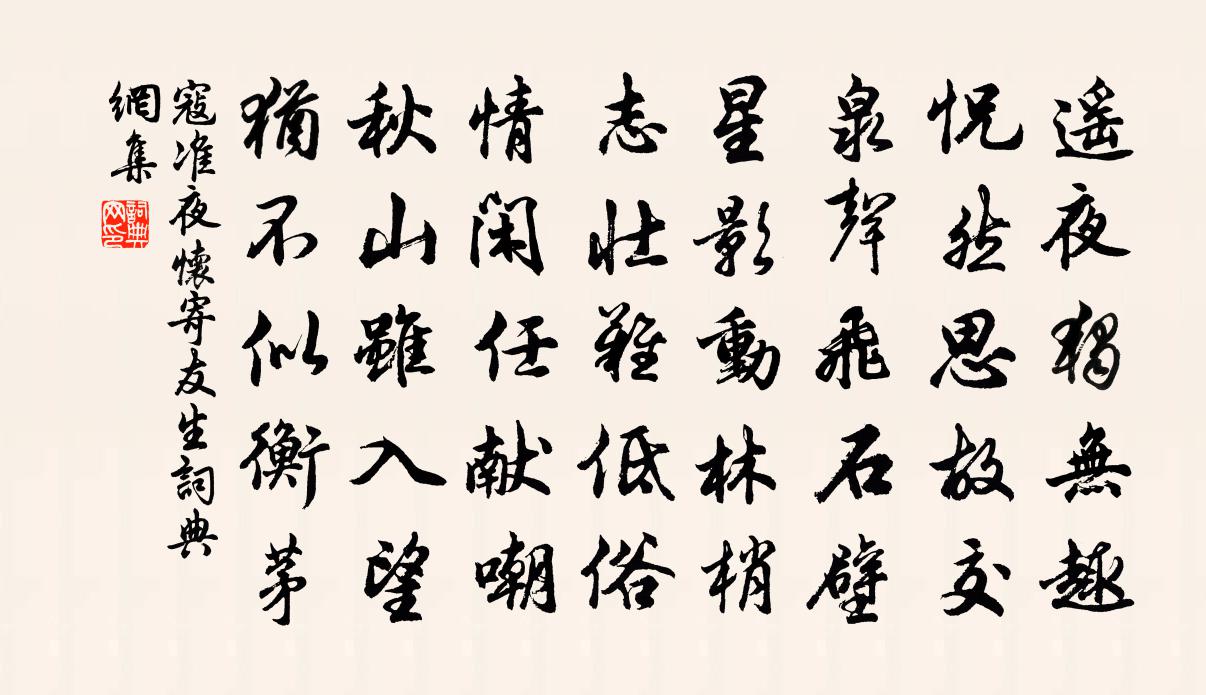 遥夜獨無趣
怳然思故交
泉聲飛石壁
星影動林梢
志壯難低俗
情閑任献嘲
秋山雖入望
猶不似衡茅
寇准夜懷寄友生詞典
網集
詞典網印